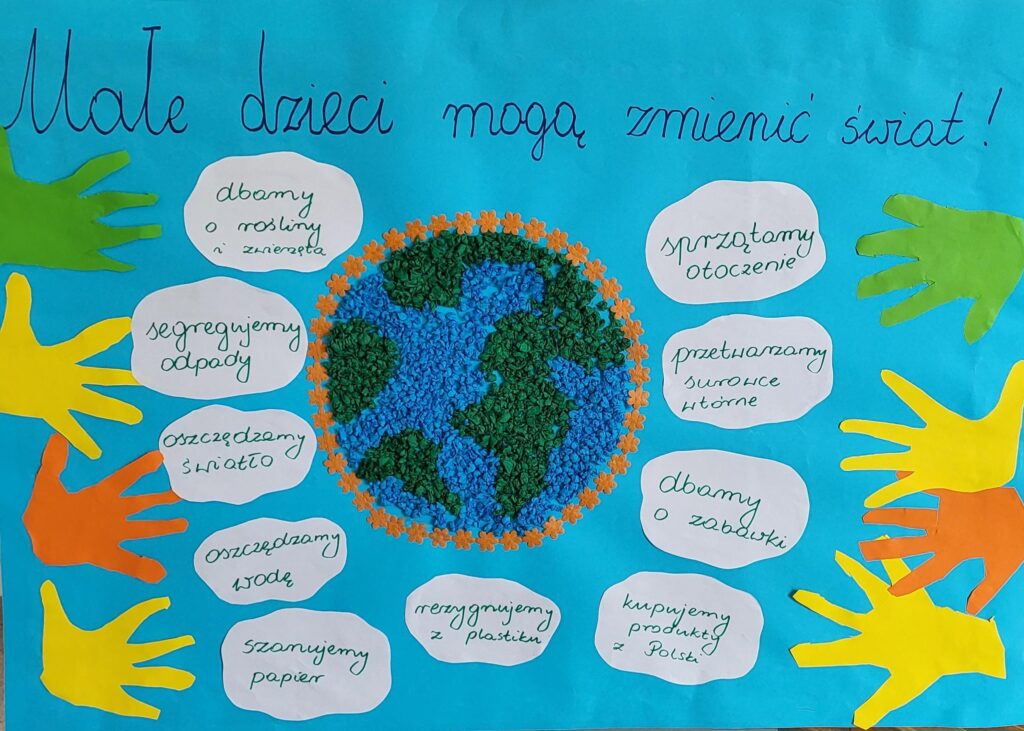 Małe dzieci mogą zmienić świat!
dbamy
o rośliny
i zwierzęta
segregujemy
odpady
oszczędzamy
światło
oszczędzamy
wodę
szanujemy
papier
rezygnujemy
z plastiku
kupujemy
produkty
z Polski
sprzątamy
otoczenie
przetwarzamy
surowce
wtórne
dbamy
o zabawki